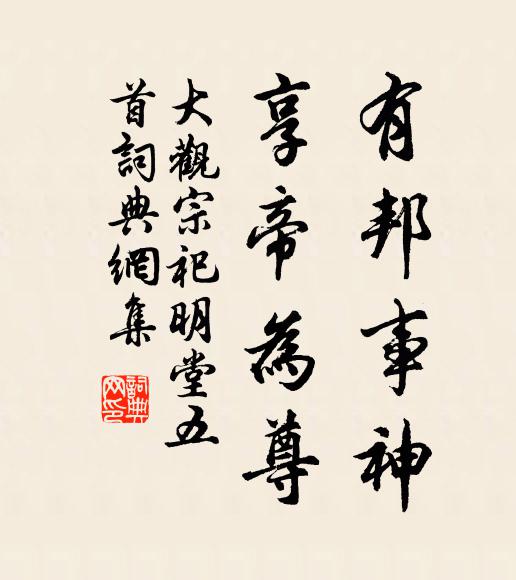 有邦事神
享帝為尊
大觀宗祀明堂五
首詞典網集
詞典網印